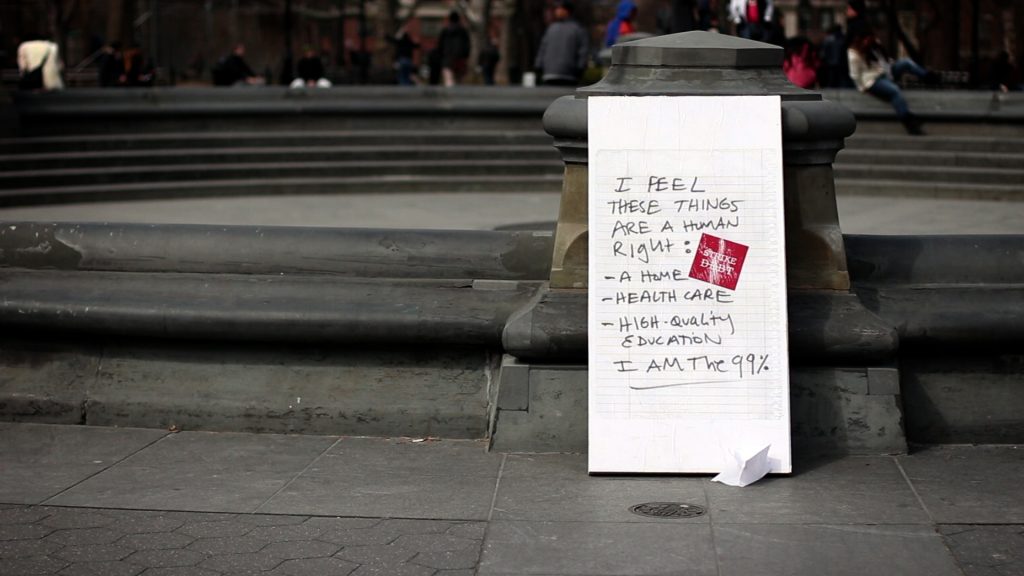 I FEEL
THESE THINGS
ARE A HUMAN
Right:
STRIKE
DEBT
- A HOME
- HEALTH CARE
- HIGH-QUALITY
EDUCATION
I AM The 99%